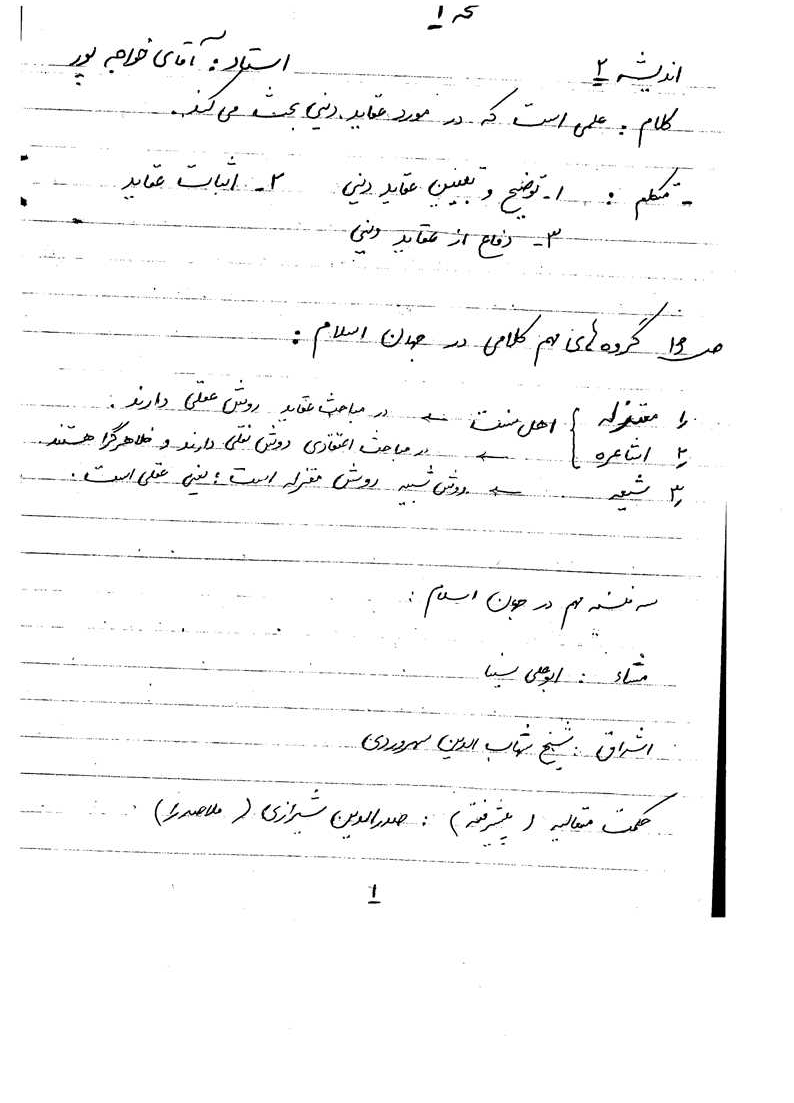 ۱
اندیشه ۲ استاد: آقای خواجه پور
کلام: علمی است که در مورد عقاید دینی بحث می کند.
- متکلم: ۱- توضیح و تبیین عقاید دینی ۲- اثبات عقاید
۳- دفاع از عقاید دینی
ص ۱۶ گروه های مهم کلامی در جهان اسلام:
۱) معتزله } اهل سنت ← در مباحث عقاید روش عقلی دارند.
۲) اشاعره } ← در مباحث اعتقادی روش نقلی دارند و ظاهرگرا هستند.
۳) شیعه ← روش شبیه روش معتزله است؛ یعنی عقلی است.
سه فلسفه مهم در جهان اسلام:
مشاء: ابوعلی سینا
اشراق: شیخ شهاب الدین سهروردی
حکمت متعالیه (پیشرفته): صدرالدین شیرازی (ملاصدرا)
۱